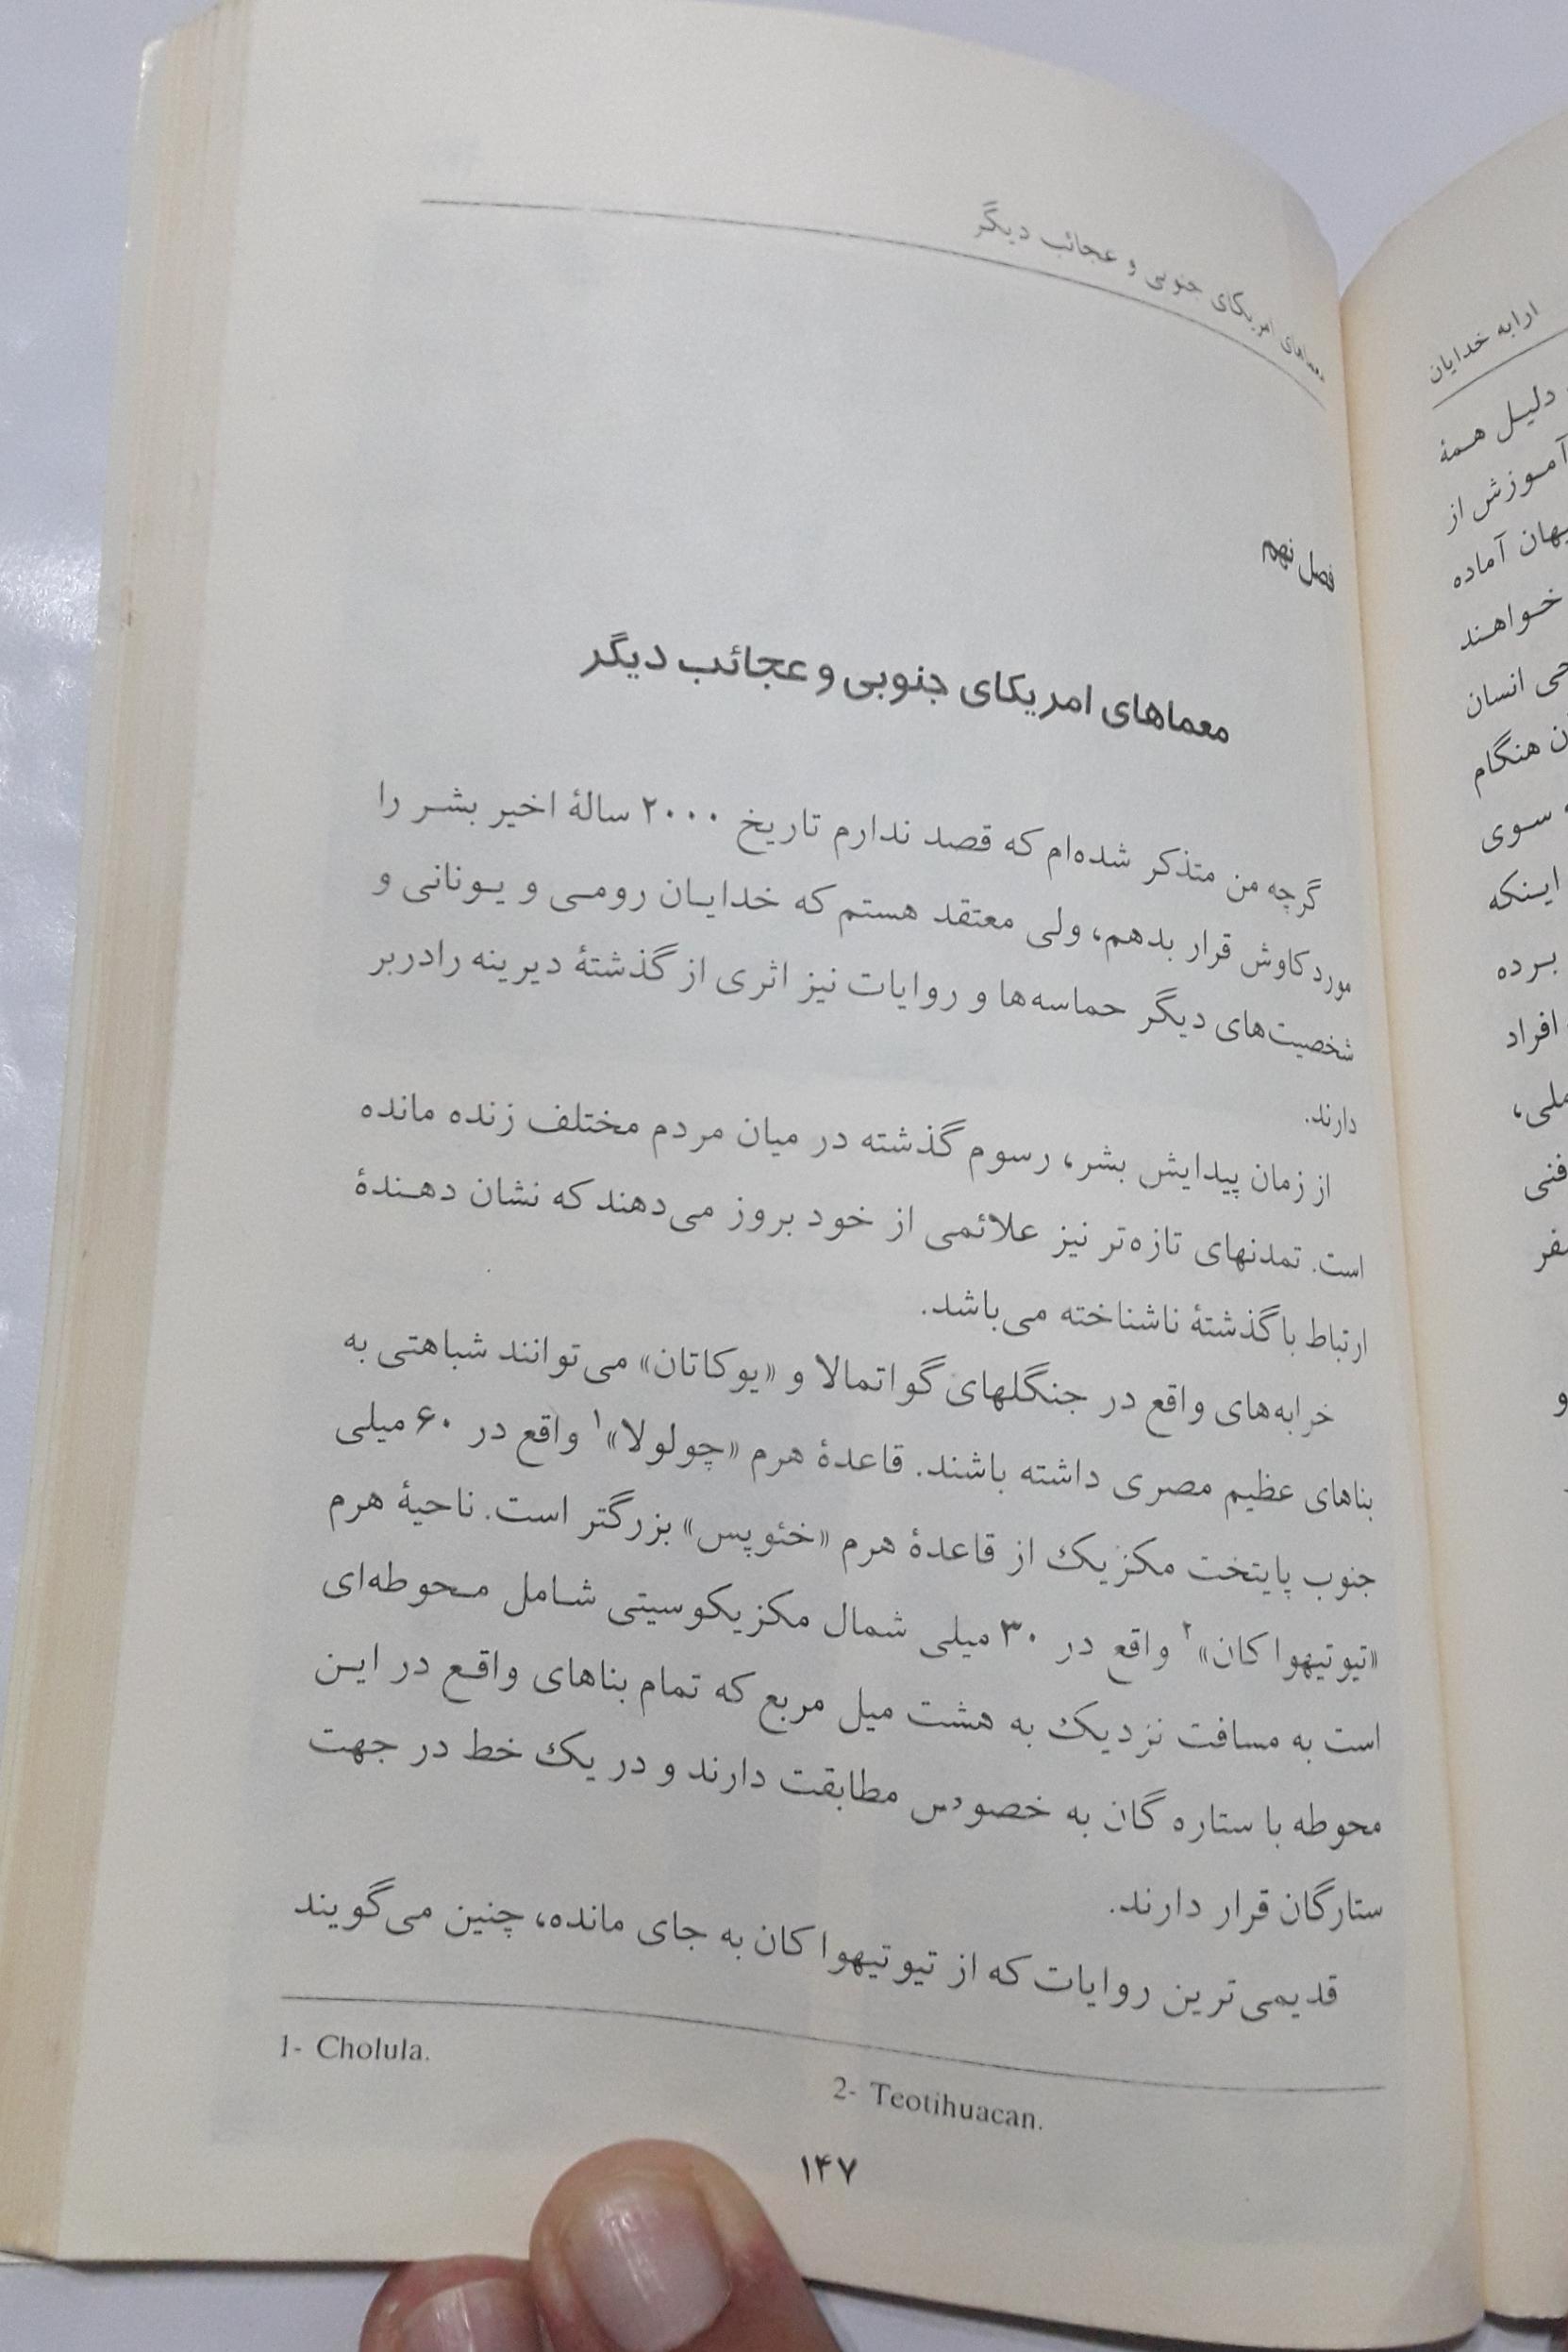 معماهای امریکای جنوبی و عجائب دیگر
فصل نهم
معماهای امریکای جنوبی و عجائب دیگر
گرچه من متذکر شده‌ام که قصد ندارم تاریخ ۲۰۰۰ سالهٔ اخیر بشر را
مورد کاوش قرار بدهم، ولی معتقد هستم که خدایان رومی و یونانی و
شخصیت‌های دیگر حماسه‌ها و روایات نیز اثری از گذشتهٔ دیرینه رادربر
دارند.
از زمان پیدایش بشر، رسوم گذشته در میان مردم مختلف زنده مانده
است. تمدنهای تازه‌تر نیز علائمی از خود بروز می‌دهند که نشان دهندهٔ
ارتباط با گذشتهٔ ناشناخته می‌باشد.
خرابه‌های واقع در جنگلهای گواتمالا و «یوکاتان» می‌توانند شباهتی به
بناهای عظیم مصری داشته باشند. قاعدهٔ هرم «چولولا»۱ واقع در ۶۰ میلی
جنوب پایتخت مکزیک از قاعدهٔ هرم «خئوپس» بزرگتر است. ناحیهٔ هرم
«تیوتیهواکان»۲ واقع در ۳۰ میلی شمال مکزیکوسیتی شامل محوطه‌ای
است به مسافت نزدیک به هشت میل مربع که تمام بناهای واقع در این
محوطه با ستاره گان به خصوص مطابقت دارند و در یک خط در جهت
ستارگان قرار دارند.
قدیمی‌ترین روایات که از تیوتیهواکان به جای مانده، چنین می‌گویند
1- Cholula.
2- Teotihuacan.
۱۴۷
ارابه خدایان
دلیل همهٔ
آموزش از
آماده
خواهند
انسان
هنگام
سوی
اینکه
برده
افراد
فنی
و